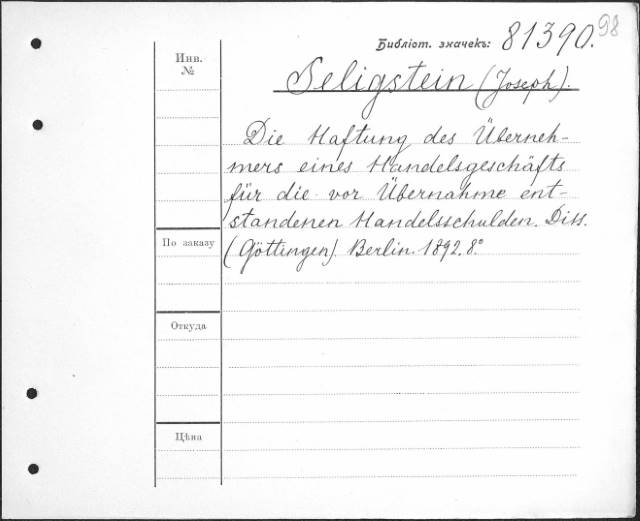 98
Библіот. значекъ: 81390.
Инв.
№
Seligstein (Joseph).
Die Haftung des Überneh-
mers eines Handelsgeschäfts
für die vor Übernahme ent-
standenen Handelsschulden. Diss.
(Göttingen). Berlin. 1892. 8°
По заказу
Откуда
Цѣна